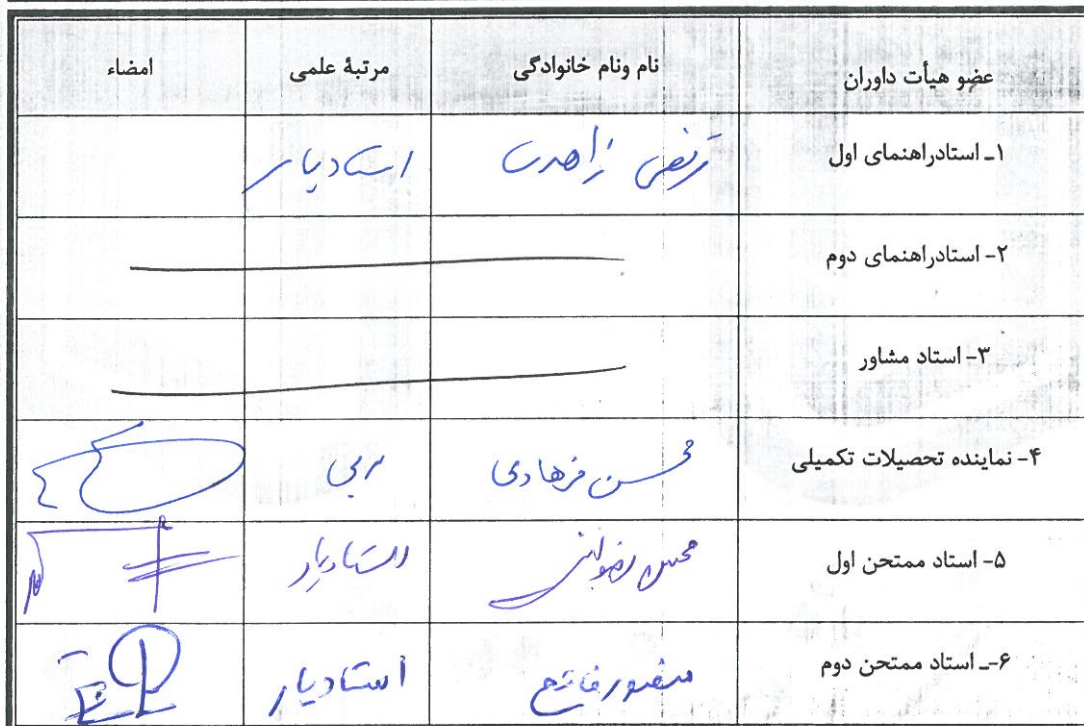 عضو هیأت داوران نام ونام خانوادگی مرتبهٔ علمی امضاء
۱ـ استادراهنمای اول زاهدی استادیار
۲- استادراهنمای دوم
۳- استاد مشاور
۴- نماینده تحصیلات تکمیلی محسن فرهادی مربی
۵- استاد ممتحن اول محسن رضوانی استادیار
۶-ـ استاد ممتحن دوم منصور فاتح استادیار